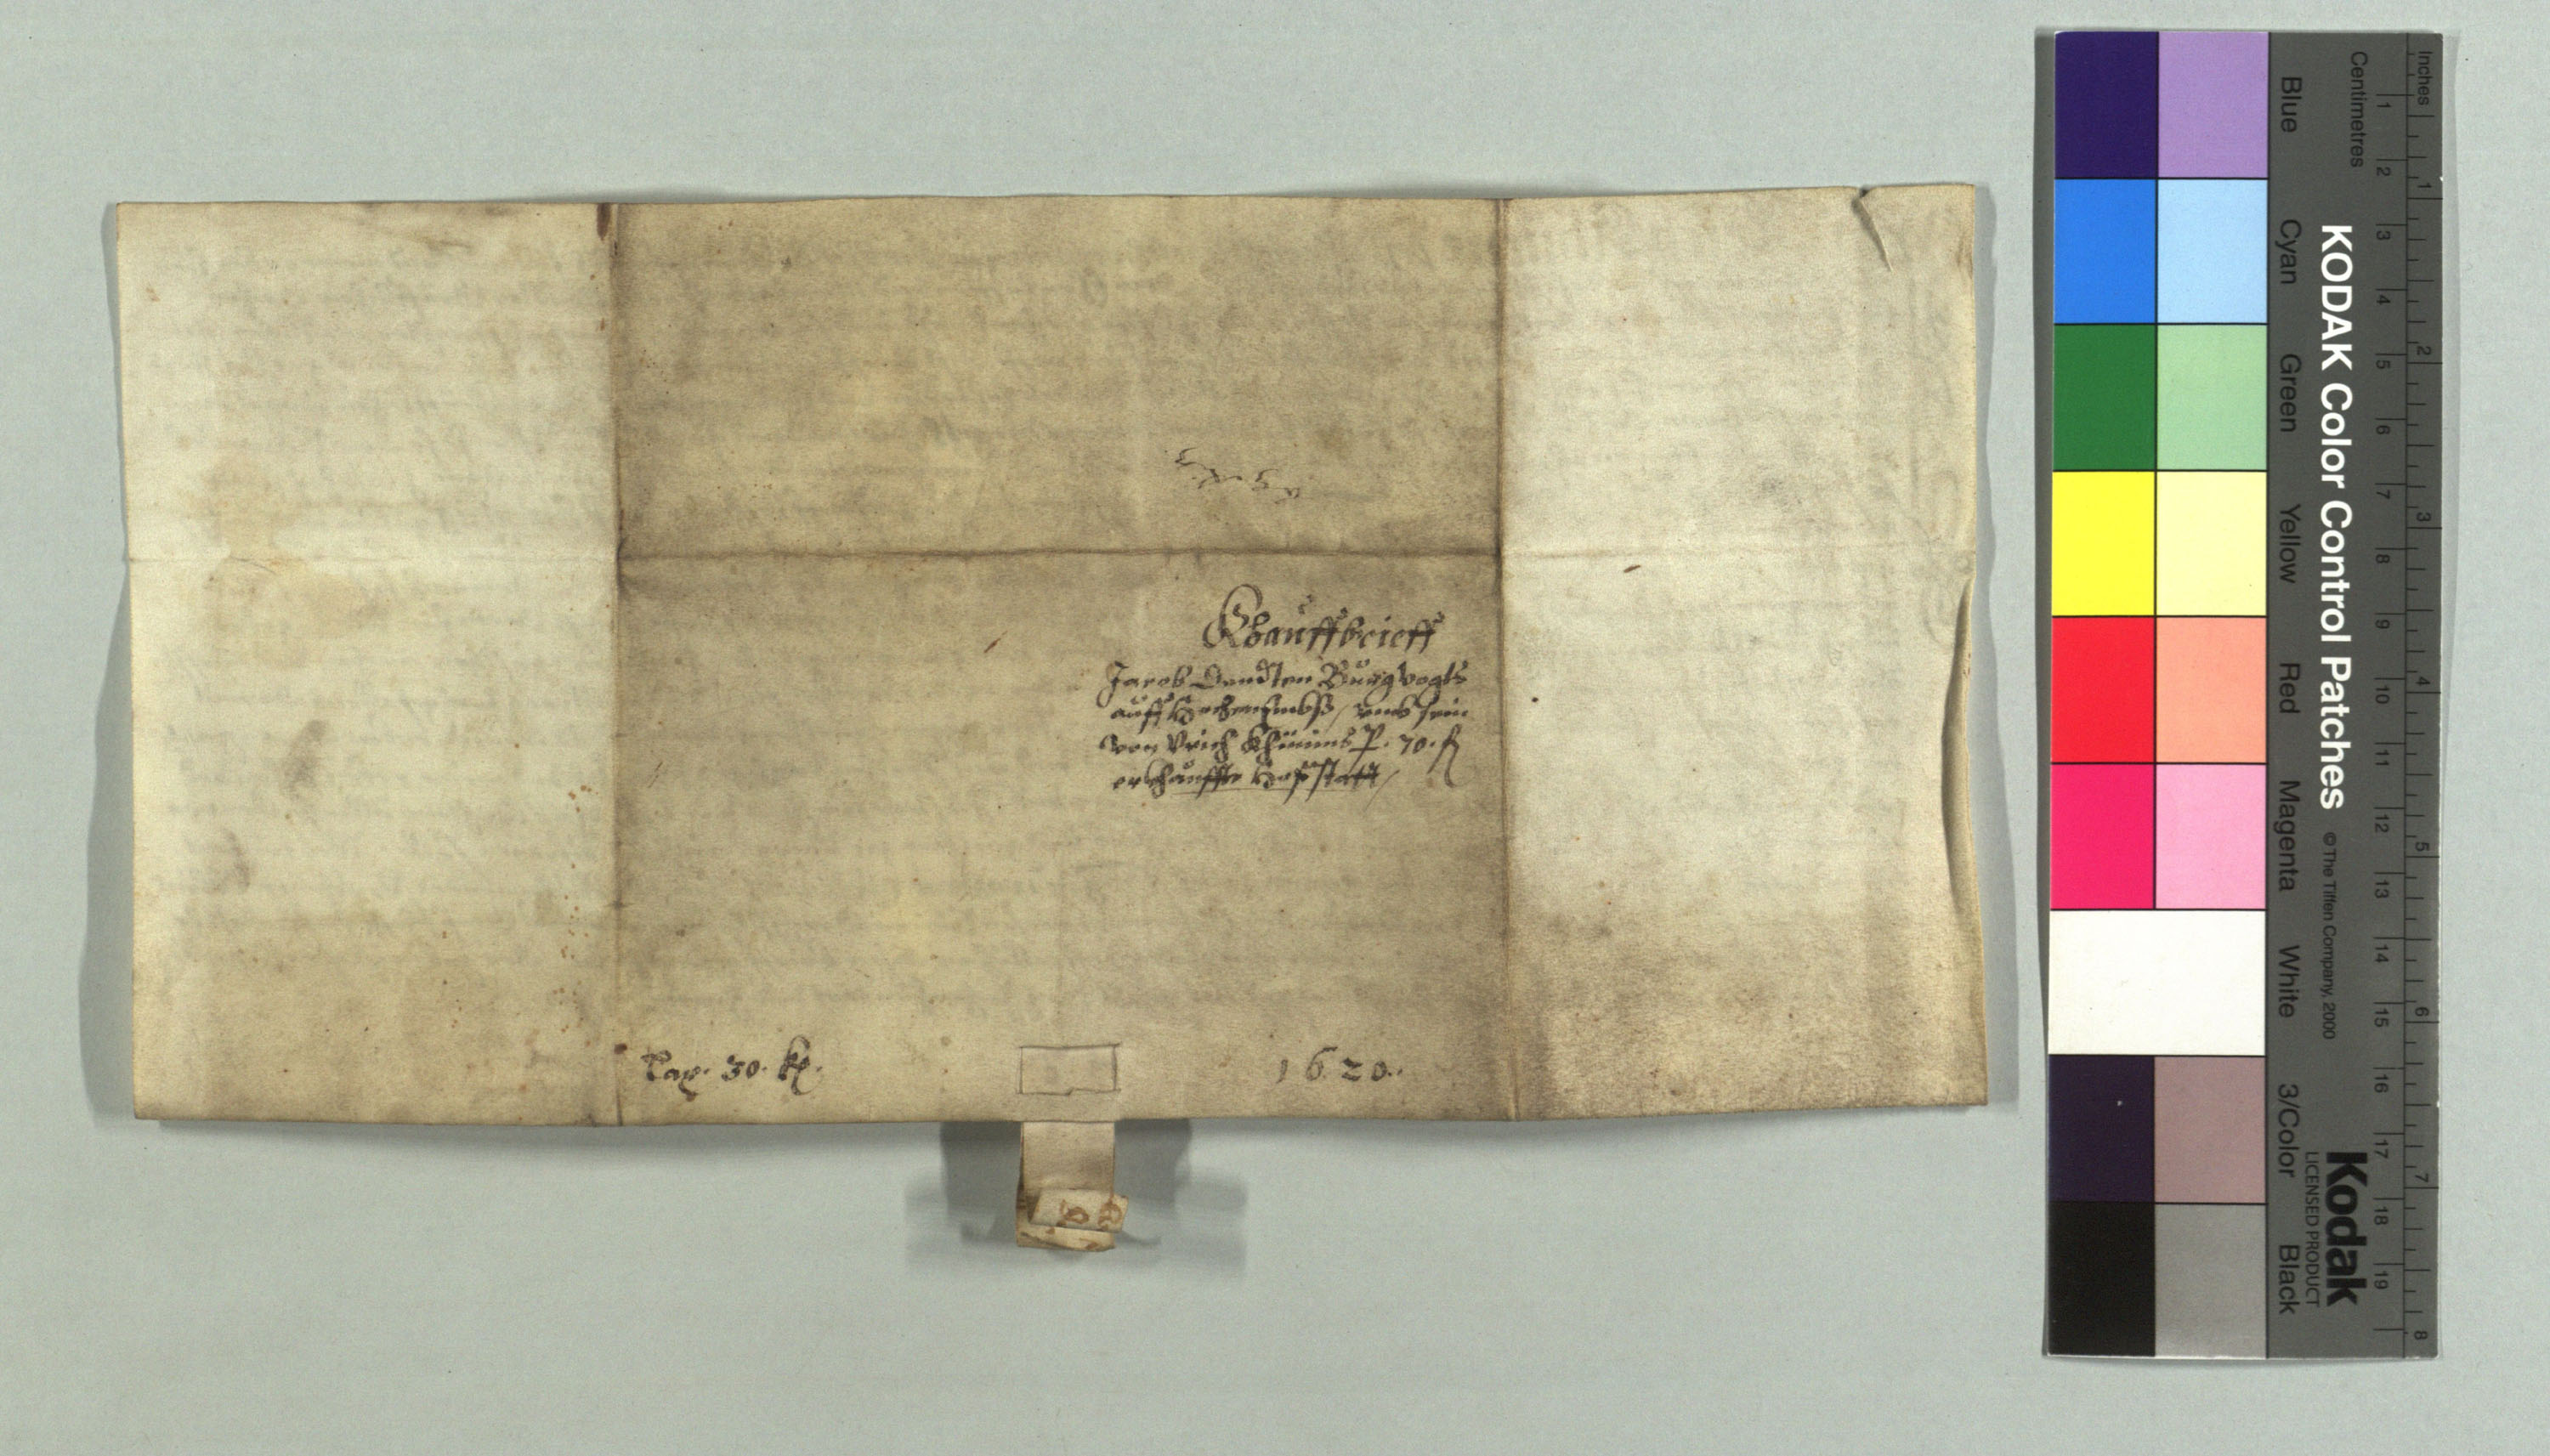 Khauffbrieff
Jacob Burgvogts
auff Hochenembß, umb sein
von Urich P. 70. fl
erkhauffte Hofstatt,
Tax. 30. kr.
1620.
KODAK Color Control Patches
© The Tiffen Company, 2000
Kodak
LICENSED PRODUCT
Inches
1 2 3 4 5 6 7 8
Centimetres
1 2 3 4 5 6 7 8 9 10 11 12 13 14 15 16 17 18 19
Blue Cyan Green Yellow Red Magenta White 3/Color Black